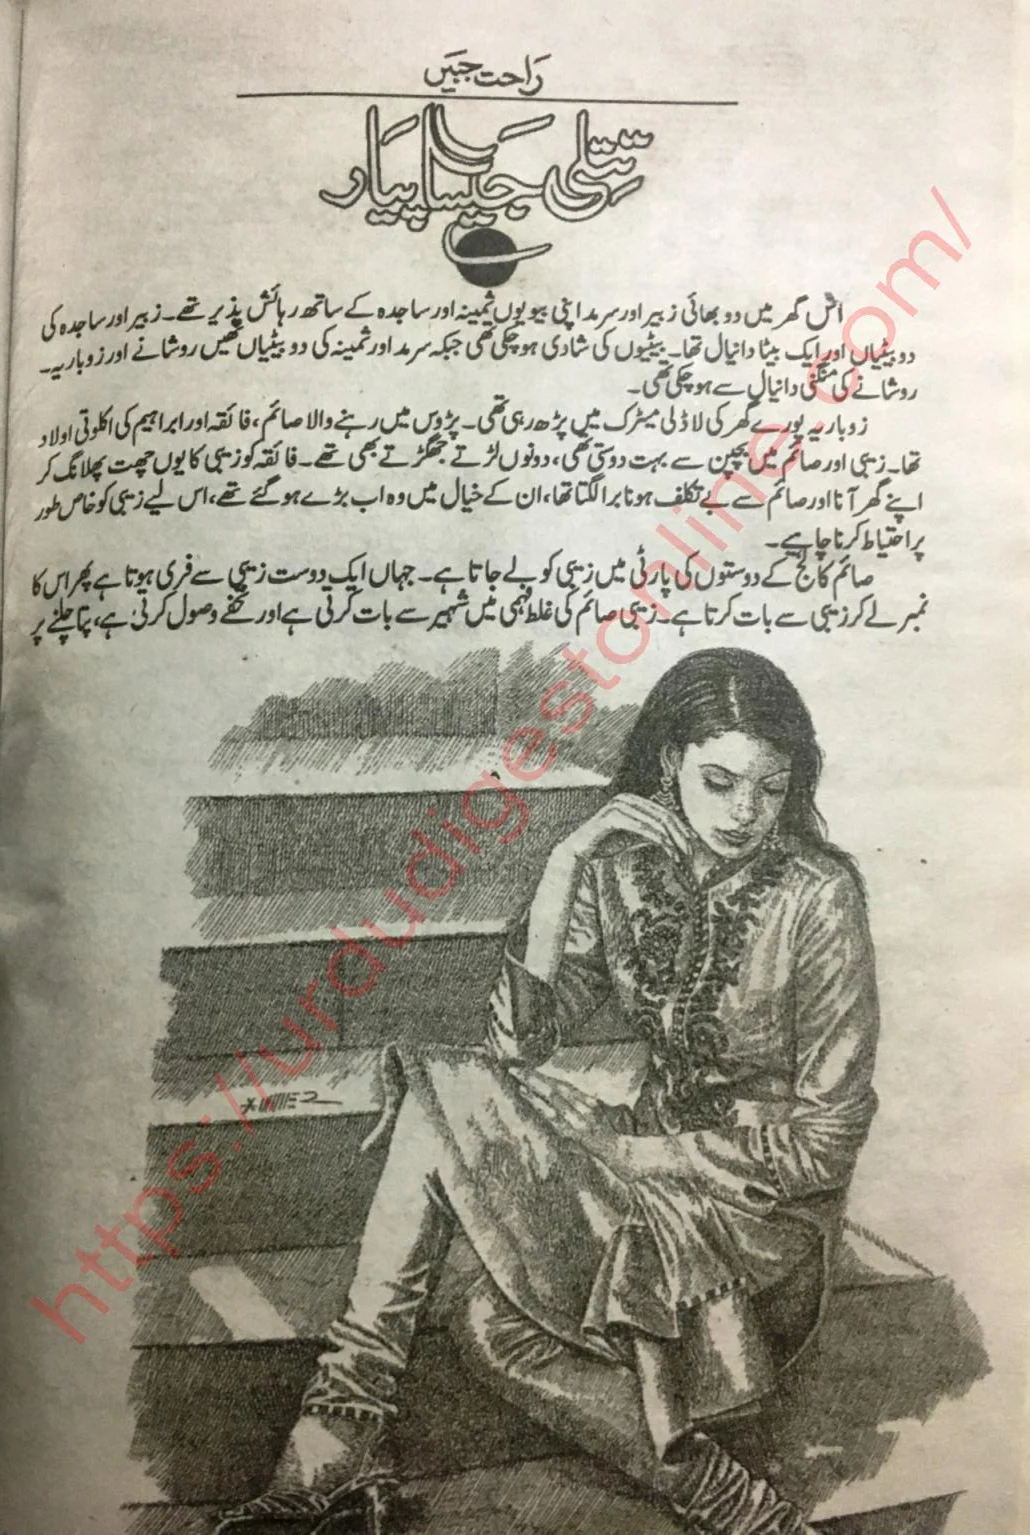 راحت جبیں
تتلی جیسا پیار
اس گھر میں دو بھائی زبیر اور سرمد اپنی بیویوں ثمینہ اور ساجدہ کے ساتھ رہائش پذیر تھے۔ زبیر اور ساجدہ کی
دو بیٹیاں اور ایک بیٹا دانیال تھا۔ بیٹیوں کی شادی ہو چکی تھی جبکہ سرمد اور ثمینہ کی دو بیٹیاں تھیں روشانے اور زوباریہ۔
روشانے کی منگنی دانیال سے ہو چکی تھی۔
زوباریہ پورے گھر کی لاڈلی میٹرک میں پڑھ رہی تھی۔ پڑوس میں رہنے والا صائم، فائقہ اور ابراہیم کی اکلوتی اولاد
تھا۔ زیبی اور صائم میں بچپن سے بہت دوستی تھی، دونوں لڑتے جھگڑتے بھی تھے۔ فائقہ کو زیبی کا یوں چھت پھلانگ کر
اپنے گھر آنا اور صائم سے بے تکلف ہونا برا لگتا تھا، ان کے خیال میں وہ اب بڑے ہو گئے تھے، اس لیے زیبی کو خاص طور
پر احتیاط کرنا چاہیے۔
صائم کالج کے دوستوں کی پارٹی میں زیبی کو لے جاتا ہے۔ جہاں ایک دوست زیبی سے فری ہوتا ہے پھر اس کا
نمبر لے کر زیبی سے بات کرتا ہے۔ زیبی صائم کی غلط فہمی میں شہیر سے بات کرتی ہے اور تحفے وصول کرتی ہے، پتا چلنے پر
https://urdudigestonline.com/